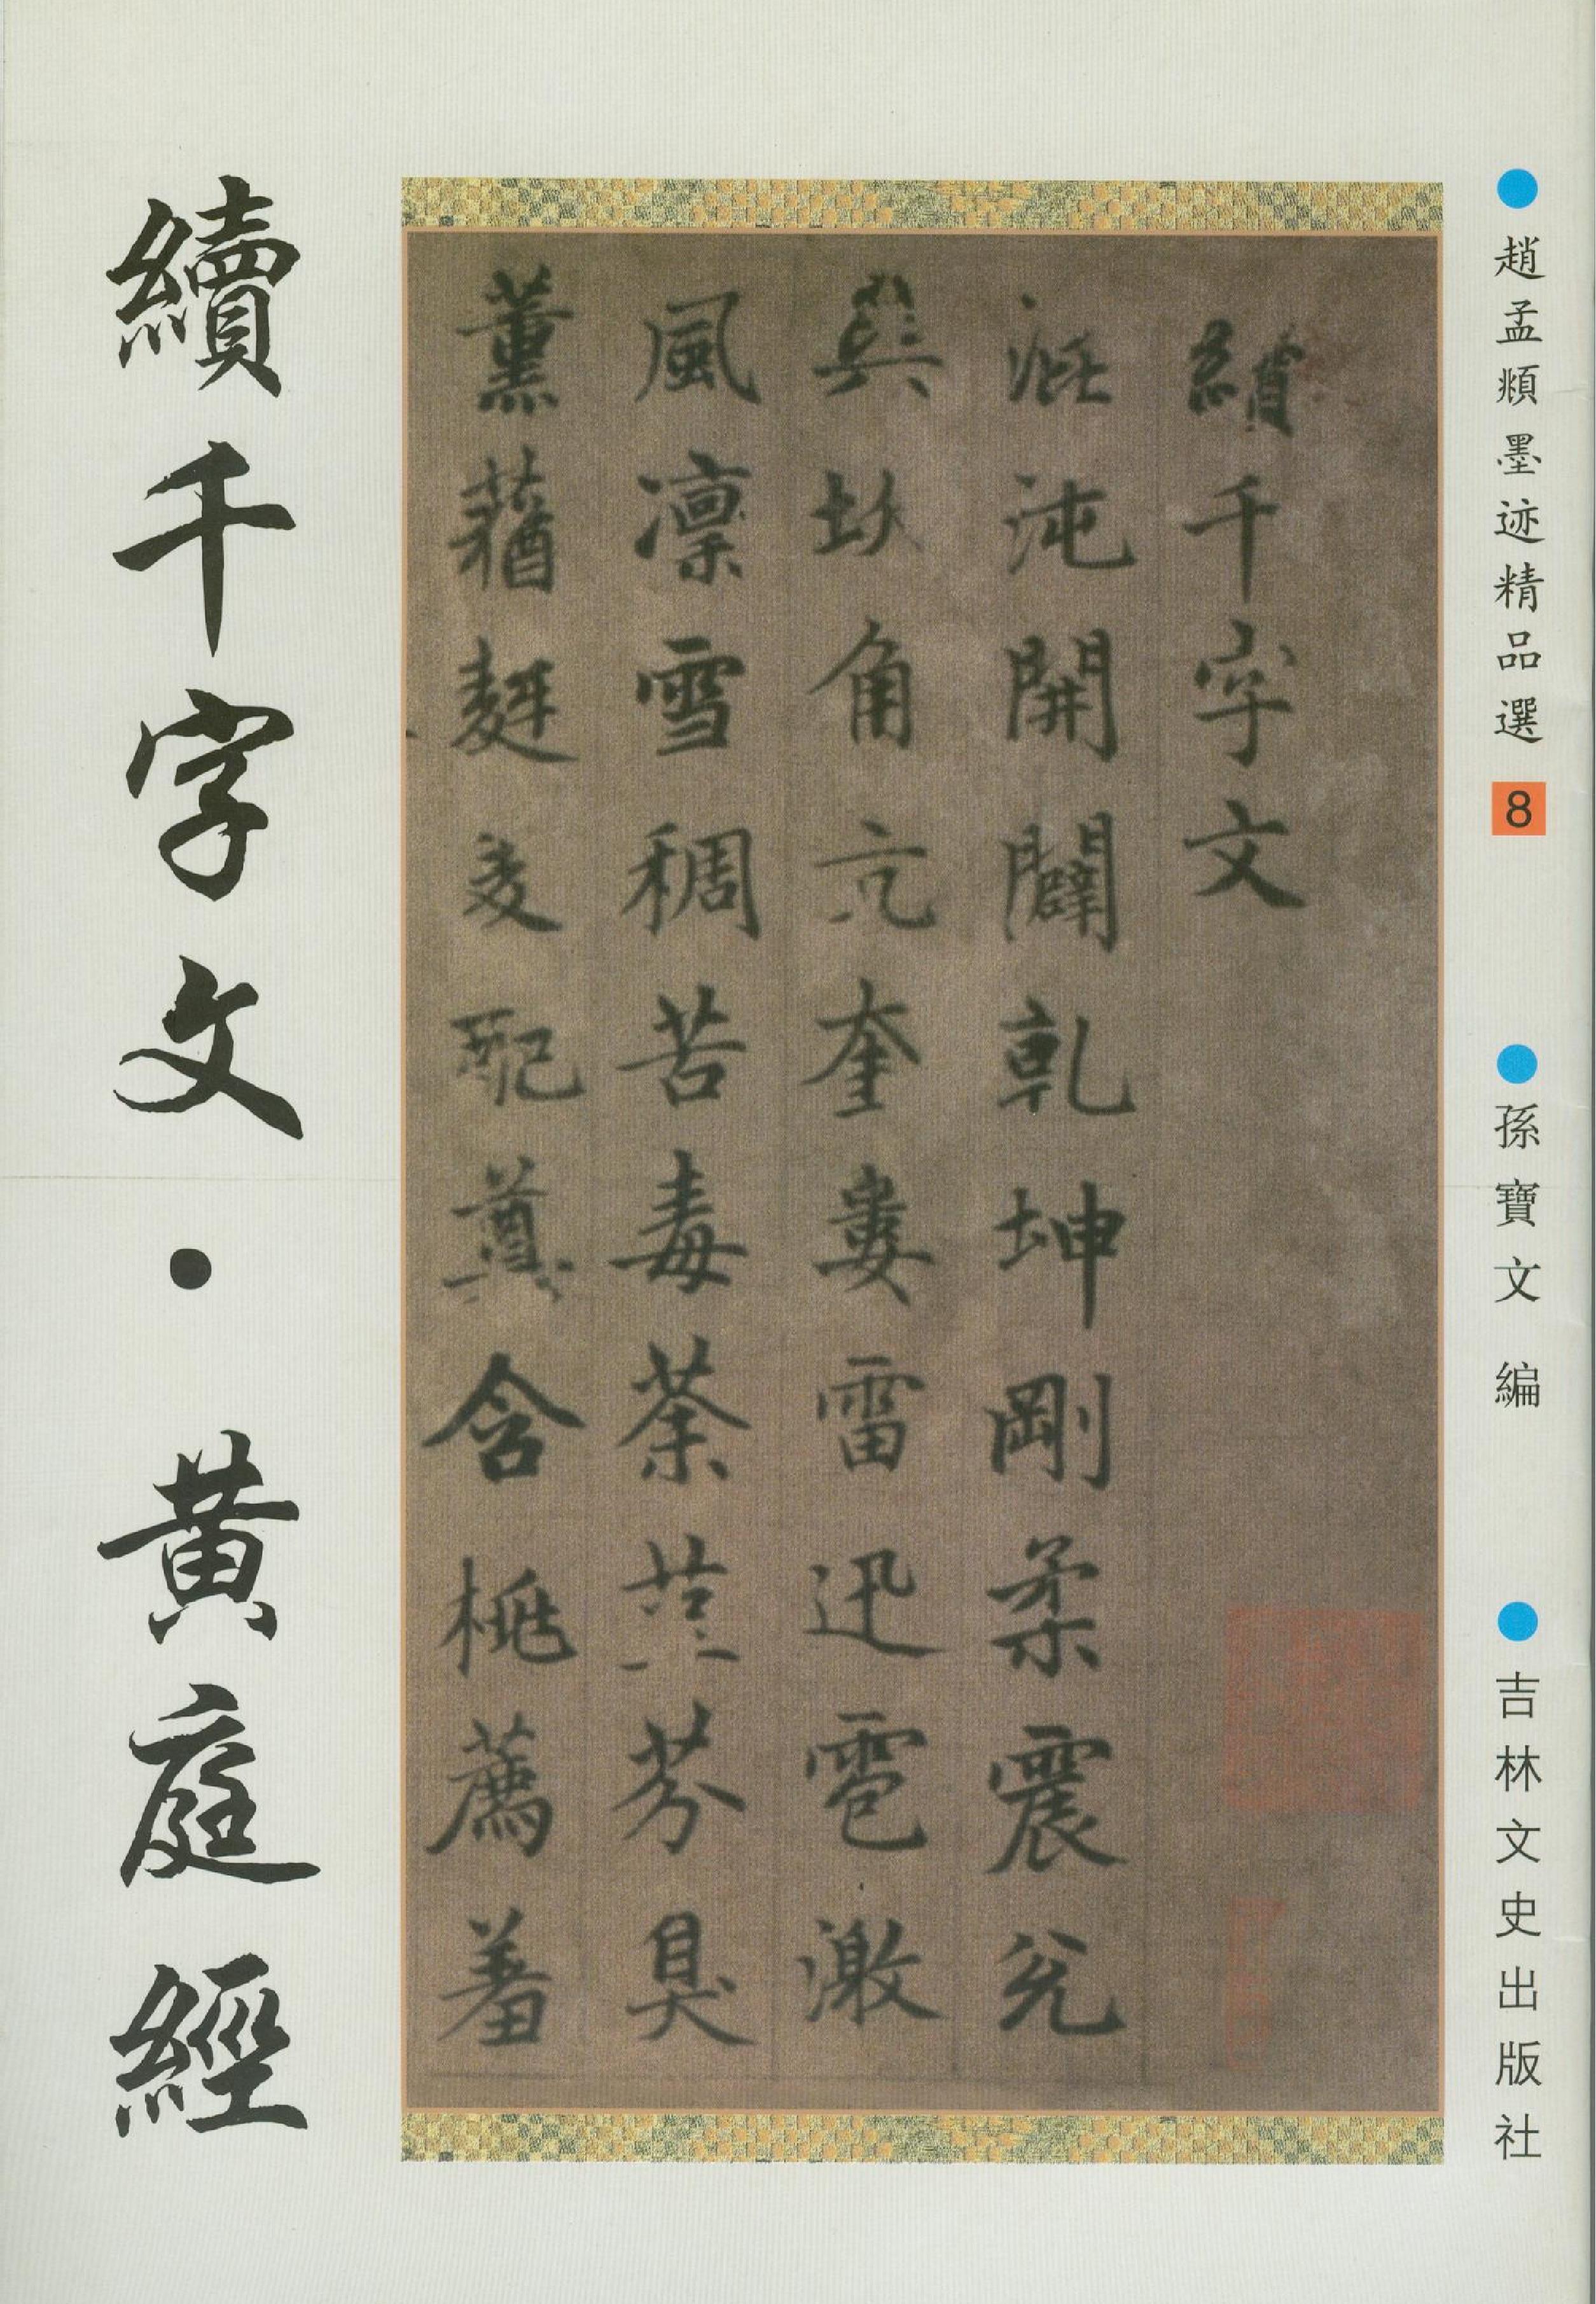 趙孟頫墨迹精品選 8
孫寶文 編
吉林文史出版社
續千字文
混沌開闢乾坤剛柔震兌
巽坎角亢奎婁雷迅雹激
風凛雪稠苦毒荼芬臭
薰蕕麰麥配含桃薦羞
續千字文·黄庭經